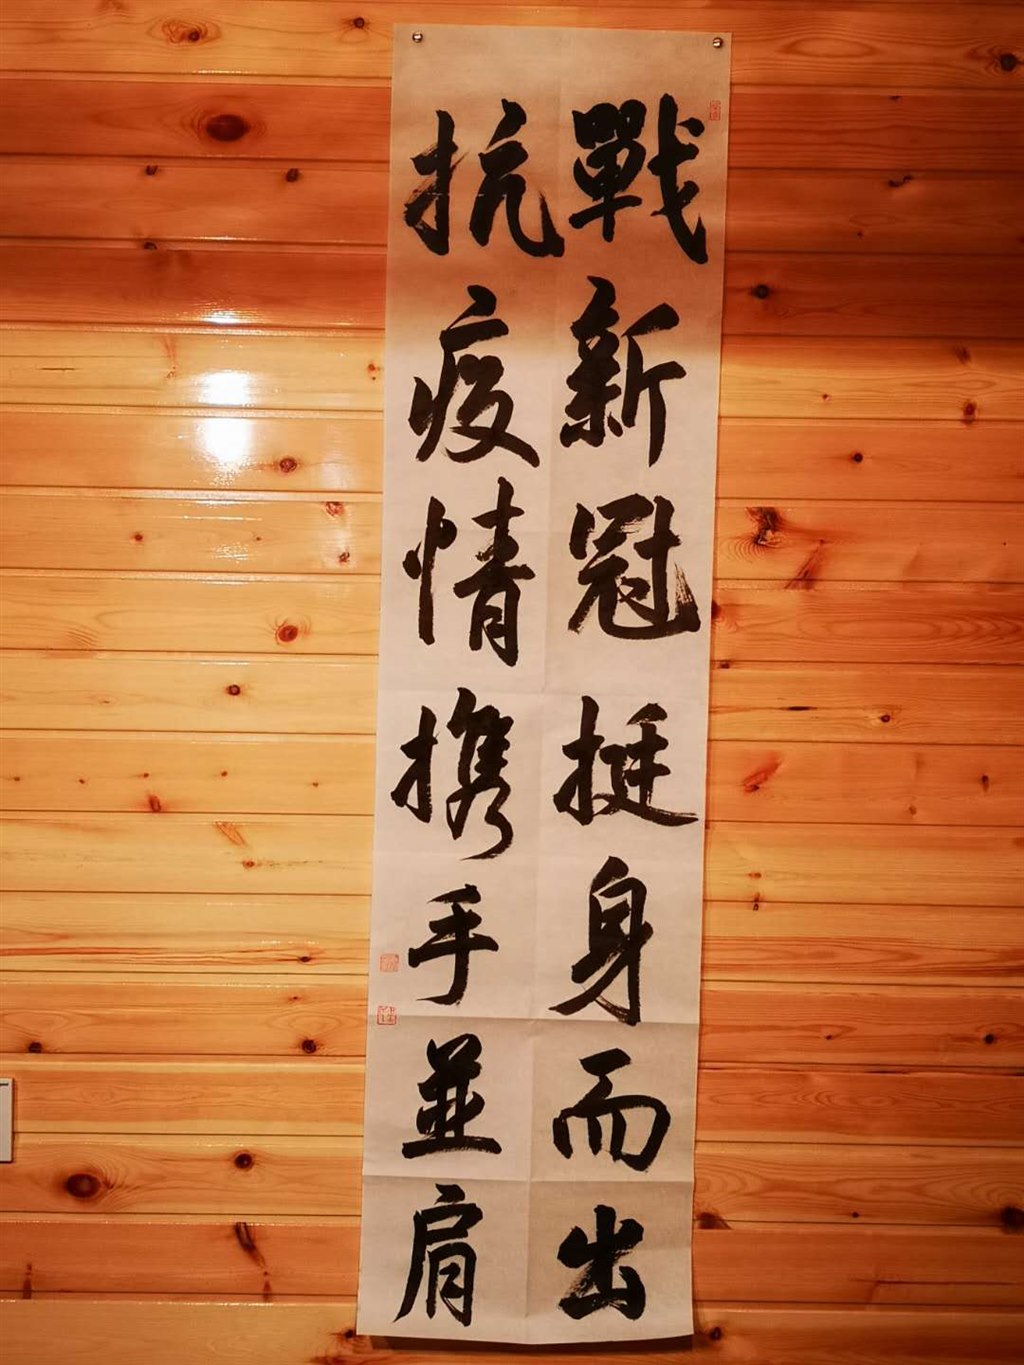 戰新冠挺身而出
抗疫情携手並肩